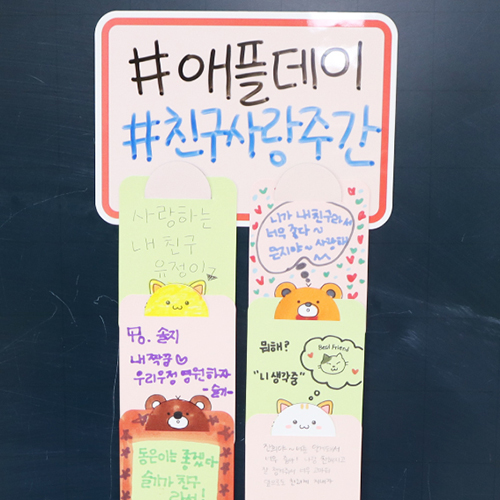 #애플데이
#친구사랑주간
사랑하는
내 친구
유정이
니가 내 친구라서
너무 좋다~
은지야~ 사랑해
To. 솔지
내 짝꿍♡
우리우정 영원하자
-슬기-
뭐해?
"니 생각중"
Best Friend
동은이는 좋겠다
슬기가 친구
라서!